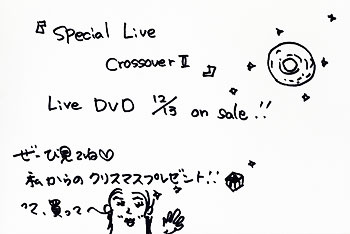 『Special Live
Crossover Ⅱ』
Live DVD 12/13 on sale!!
ぜーひ見てね♡
私からのクリスマスプレゼント!!
って、買って〜